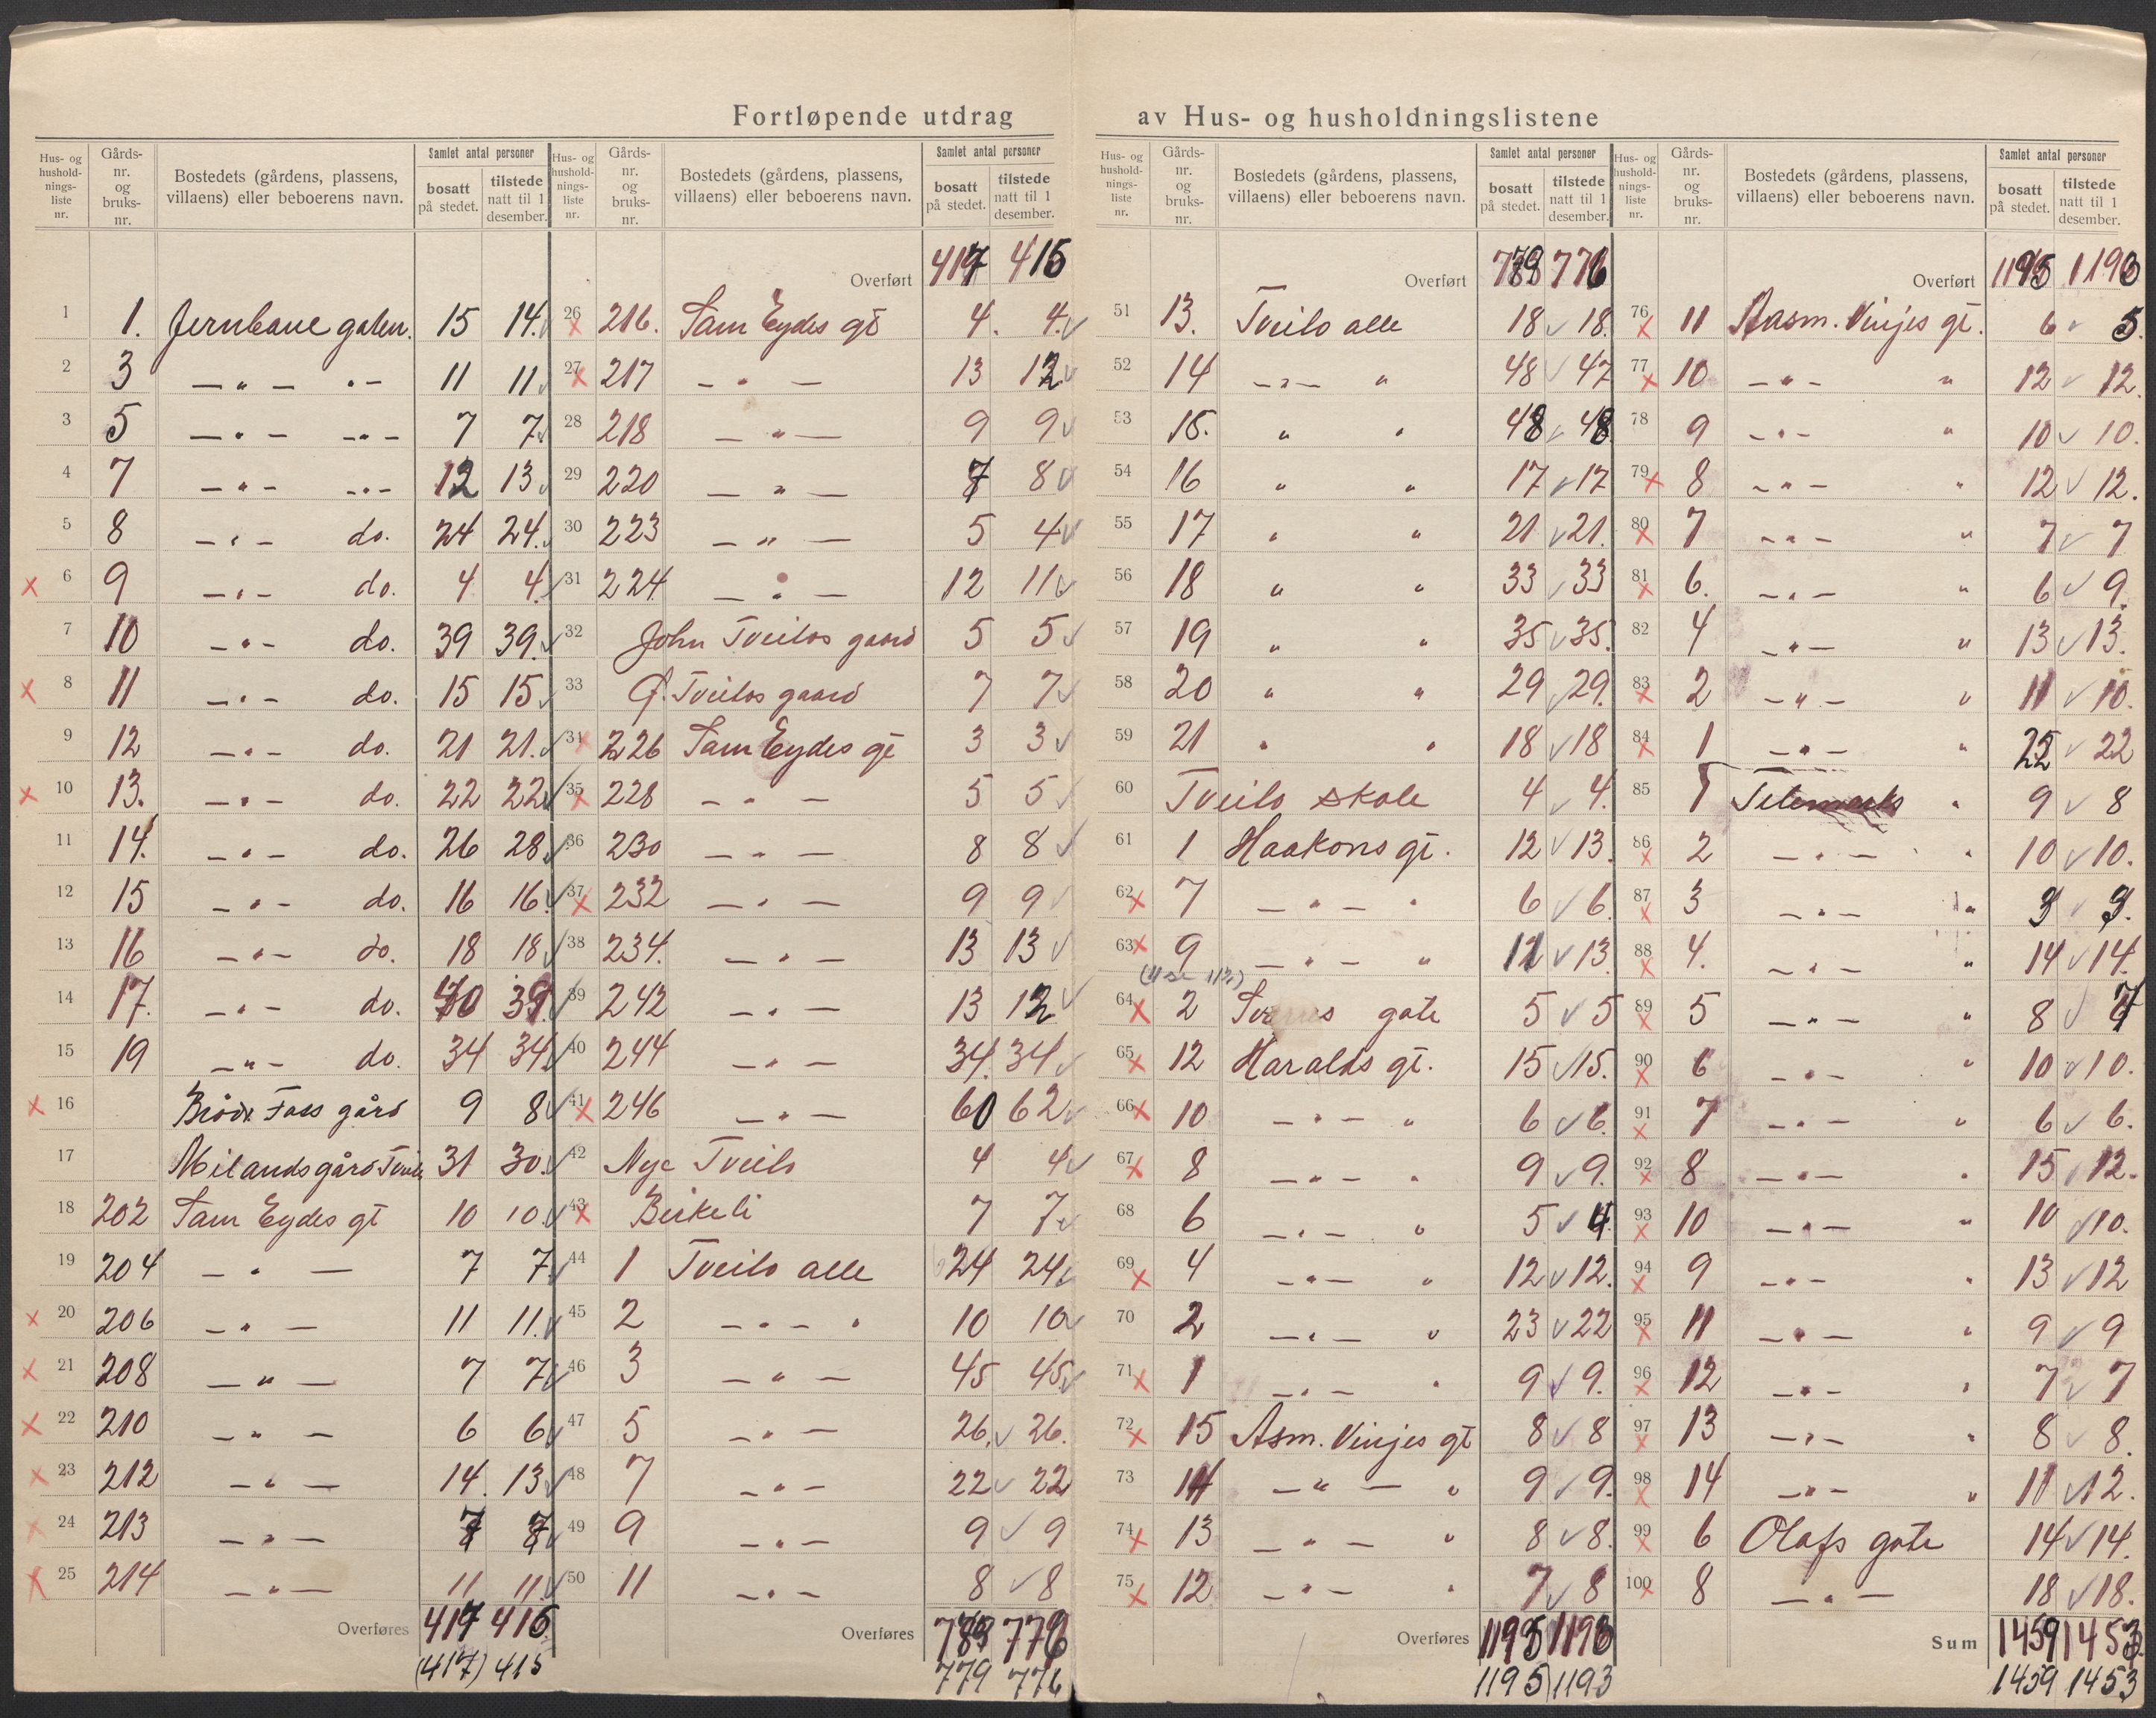 Fortløpende utdrag av Hus- og husholdningslistene
Hus- og hushold-nings-liste nr. Gårds-nr. og bruks-nr. Bostedets (gårdens, plassens, villaens) eller beboerens navn. Samlet antal personer bosatt på stedet. tilstede natt til 1 desember.
1 1. Jernbane gaten. 15 14.
2 3 — " — " — 11 11
3 5 — " — — " — 7 7
4 7 — " — — " — 12 13
5 8 — " — do. 24 24.
6 9 — " — do. 4 4
7 10 — " — do. 39 39.
8 11 — " — do. 15 15
9 12 — " — do. 21 21.
10 13. — " — do. 22 22
11 14. — " — do. 26 28
12 15 — " — do. 16 16
13 16 — " — do. 18 18
14 17. — " — do. 40 39
15 19 — " — do. 34 34
16 Brødr. Foss gård 9 8
17 Milands gård Tveito 31 30.
18 202 Sam Eydes gt 10 10
19 204 — " — 7 7
20 206 — " — 11 11.
21 208 — " — 7 7
22 210 — " — 6 6
23 212 — " — 14. 13
24 213 — " — 7 7
25 214 — " — 11 11
Overføres 417 415
(417) 415
Hus- og hushold-nings-liste nr. Gårds-nr. og bruks-nr. Bostedets (gårdens, plassens, villaens) eller beboerens navn. Samlet antal personer bosatt på stedet. tilstede natt til 1 desember.
Overført 417 415
26 216. Sam Eydes gt 4. 4.
27 217 — " — 13 12
28 218 — " — 9 9
29 220 — " — 7 8
30 223 — " — 5 4
31 224 — " — 12 11
32 John Tveitos gaard 5 5
33 Tveitos gaard 7 7
34 226 Sam Eydes gt 3 3
35 228 — " — 5 5
36 230 — " — 8 8
37 232 — " — 9 9
38 234. — " — 13 13
39 242 — " — 13 12
40 244 — " — 34. 34
41 246 — " — 60 62
42 Nye Tveito 4 4
43 Birkeli 7 7
44 1 Tveito alle 24 24
45 2 — " — " 10 10
46 3 — " — 45 45
47 5 — " — 26. 26.
48 7 — " — 22 22
49 9 — " — 9 9
50 11 — " — 8 8
Overføres 779 776
779 776
Hus- og hushold-nings-liste nr. Gårds-nr. og bruks-nr. Bostedets (gårdens, plassens, villaens) eller beboerens navn. Samlet antal personer bosatt på stedet. tilstede natt til 1 desember.
Overført 779 776
51 13. Tveito alle 18 18.
52 14 — " — " 48 47
53 15. " " 48 48
54 16 " " 17 17
55 17 " " 21 21.
56 18 " " 33 33
57 19 " " 35 35.
58 20 " " 29 29.
59 21 " " 18 18
60 Tveito skole 4 4.
61 1 Haakons gt. 12 13.
62 7 — " — " 6 6.
63 9 — " — " 12 13
64 2 gate 5 5
65 12 Haralds gt. 15 15.
66 10 — " — " 6 6
67 8 — " — " 9 9.
68 6 — " — " 5 4
69 4 — " — " 12 12.
70 2 — " — " 23 22
71 1 — " — " 9 9.
72 15 Asm. Vinjes gt 8 8
73 14 — " — " 9 9.
74 13 — " — " 8 8.
75 12 — " — " 7 8
Overføres 1195 1193
1195 1193
Hus- og hushold-nings-liste nr. Gårds-nr. og bruks-nr. Bostedets (gårdens, plassens, villaens) eller beboerens navn. Samlet antal personer bosatt på stedet. tilstede natt til 1 desember.
Overført 1195 1193
76 11 Aasm. Vinjes gt. 6 5.
77 10 — " — " 12 12.
78 9 — " — " 10 10.
79 8 — " — " 12 12.
80 7 — " — " 7 7
81 6. — " — " 6 9.
82 4 — " — " 13 13.
83 2 — " — " 11 10.
84 1 — " — " 22 22
85 1 Telemarks " 9 8
86 2 — " — " 10 10.
87 3 — " — " 9 9.
88 4. — " — " 14 14.
89 5 — " — " 8 7
90 6 — " — " 10 10.
91 7 — " — " 6 6.
92 8 — " — " 15 12.
93 10 — " — " 10 10.
94 9 — " — " 13 12
95 11 — " — " 9 9
96 12 — " — " 7 7
97 13 — " — " 8 8.
98 14 — " — " 11 12.
99 6 Olafs gate 14 14.
100 8 — " — 18 18.
Sum 1459 1453
1459 1453